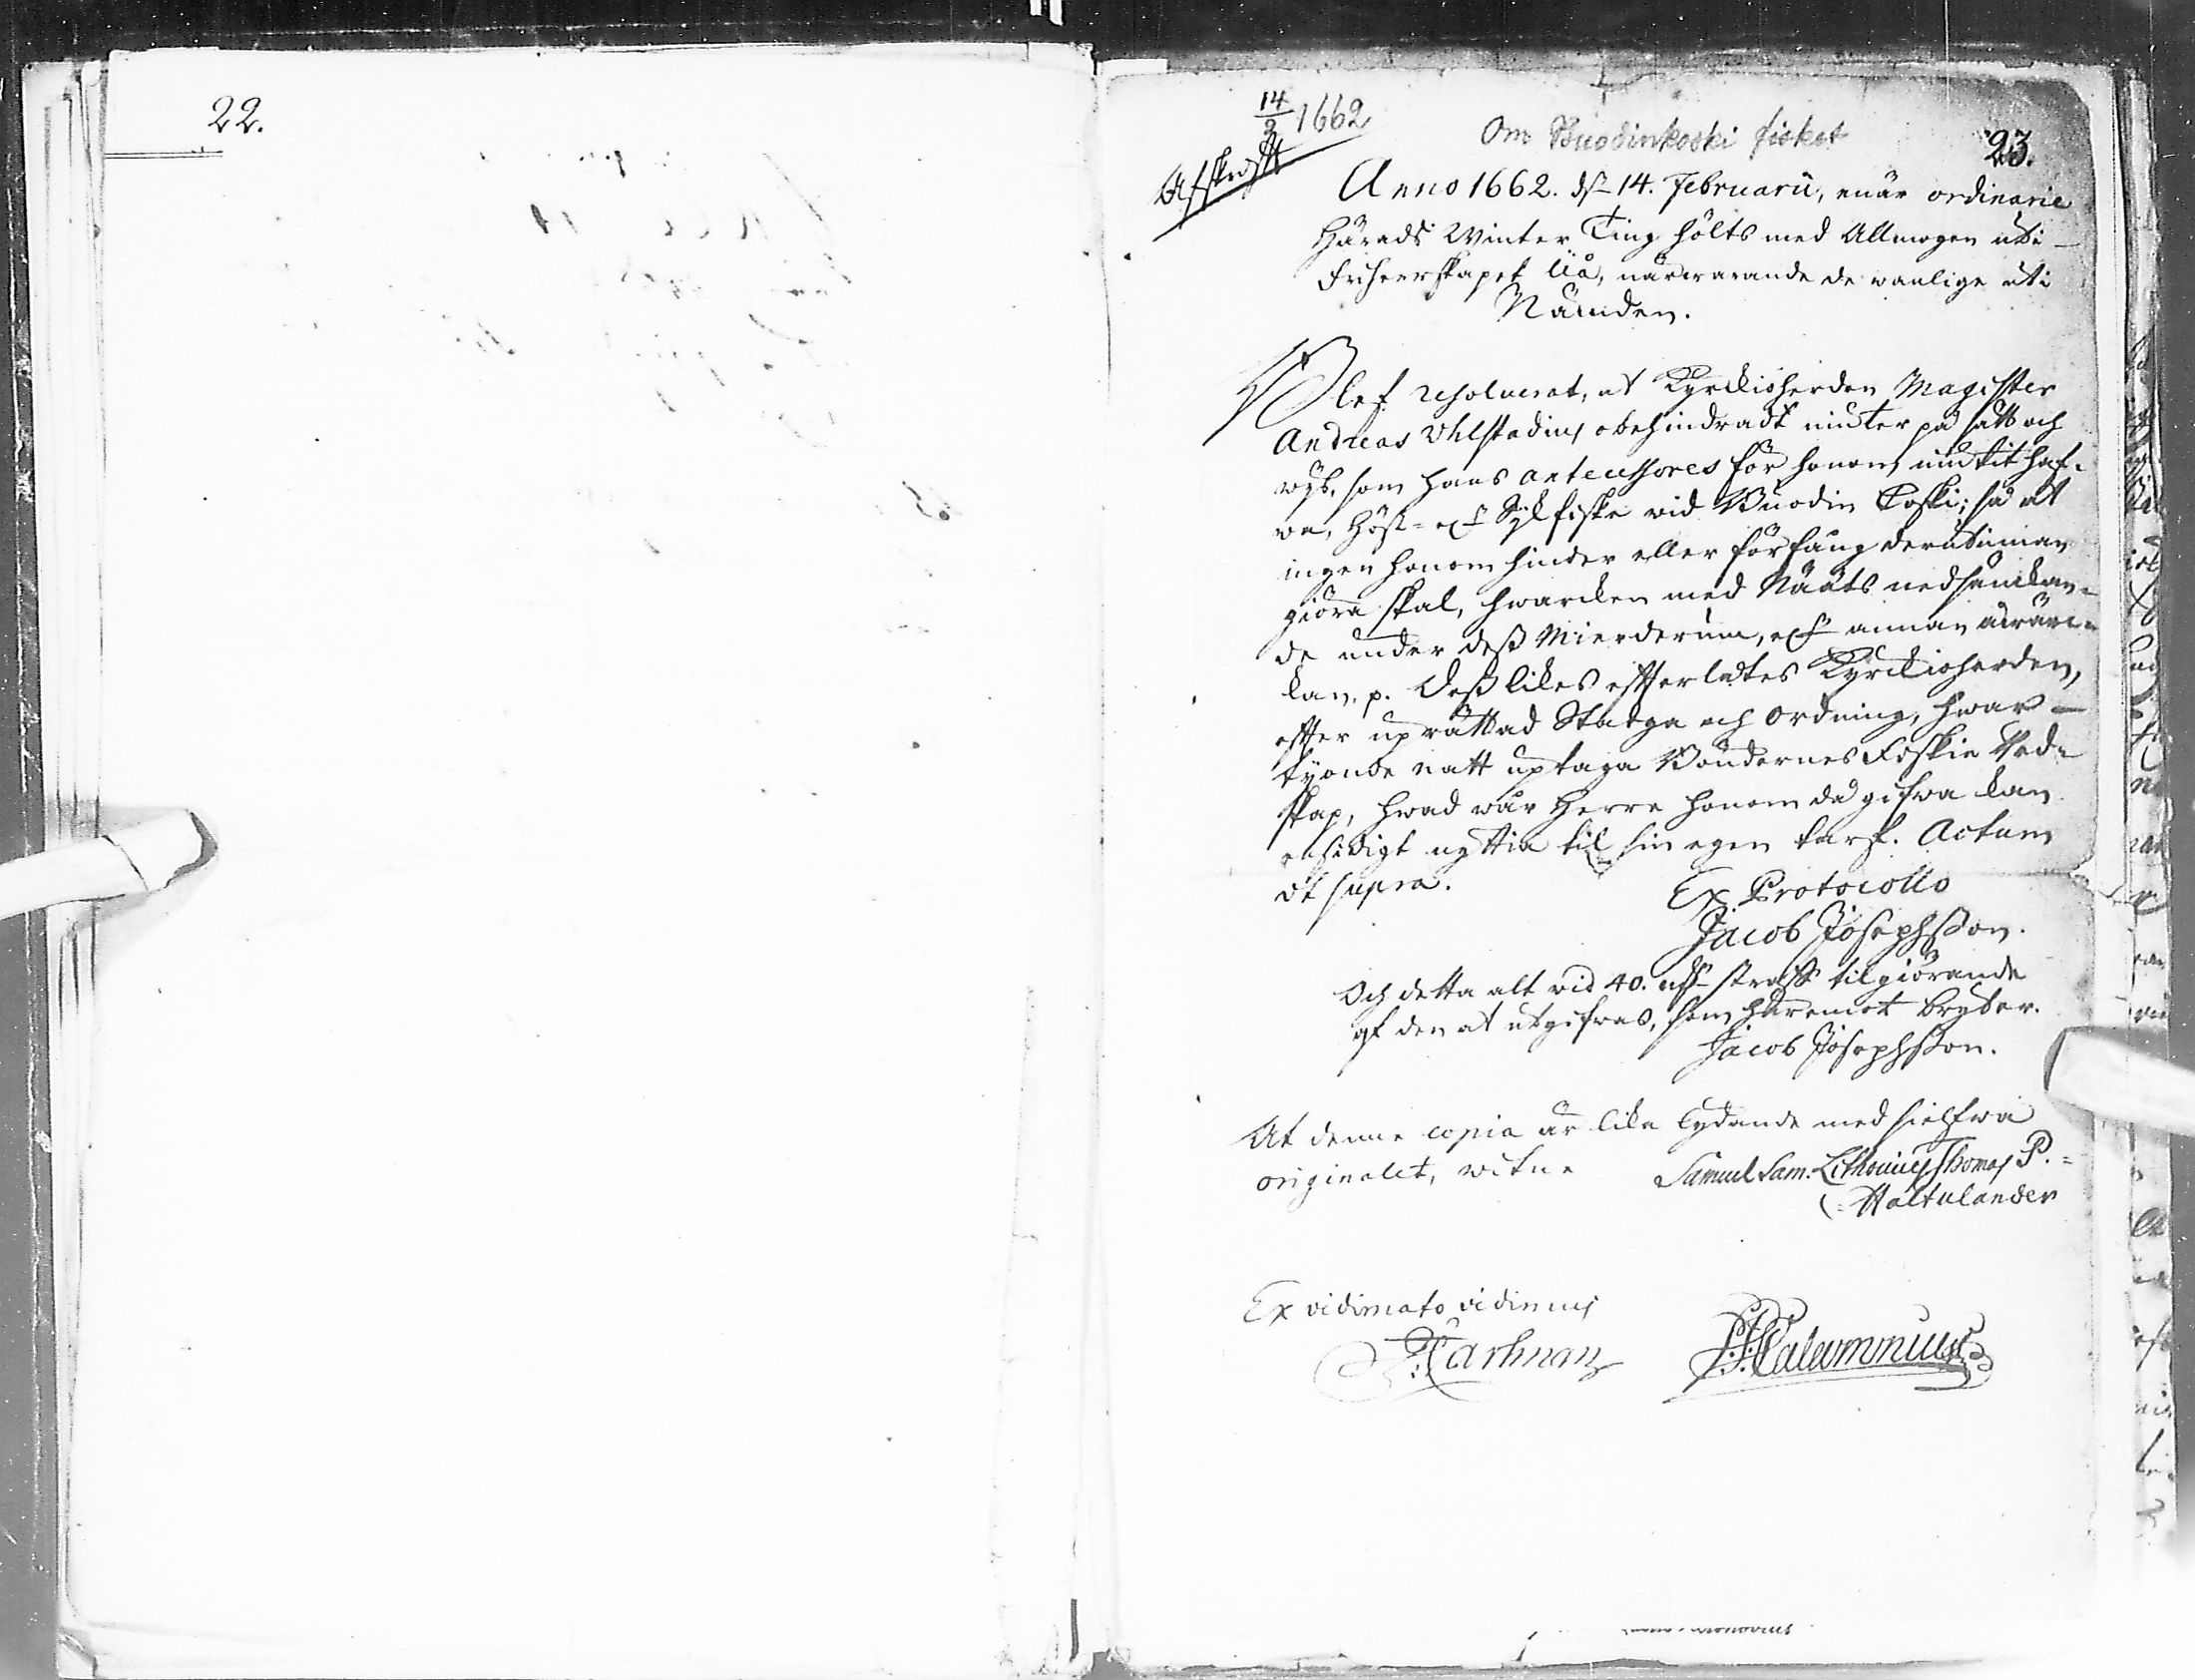 22.
14/2 1662
Om Buodinkoski fisket
23.
Afskrift
Anno 1662. dn 14. Februarii, enär ordinarie
Härads Winter Ting hölts med Allmogen uti
Friherrskapet Uå, närwarande de wanlige uti
Nämden.
Blef resolverat, at Kyrckioherden Magister
Andreas Uhlstadius obehindradt niuter på sätt och
wijs, som hans antecessores för honom niutit haf-
wa, Höst- och Sijkfiske wid Buodin Koski; så at
ingen honom hinder eller förfång derutinnan
giöra skal, hwarcken med Nääts nedsänckan-
de under dess Mierderum, och annan
kan, p. Dess likes efterlåtes Kyrckioherden,
efter uprättad Stadga och ordning, hwar
tyonde natt uptaga Böndernes Fiskie Red-
skap, hwad wår Herre honom då gifwa kan
nyttia til sin egen tarf. Actum
ut supra.
Ex Protocollo
Jacob Josephsson.
Och detta alt wid 40. straff tilgiörande
af den at utgifwas, som häremot bryter.
Jacob Josephsson.
At denne copia är lika lydande med sielfwa
originalet, witne Samuel Sam. Lithovius Thomas P.
Haltulander
Ex vidimato vidimus
Carlman Calamnius